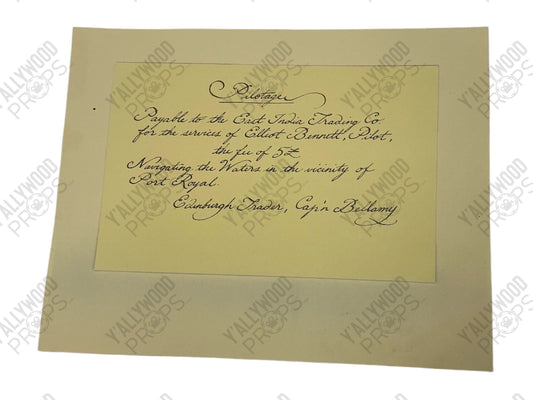 Pilotage
Payable to the East India Trading Co.
for the services of Elliot Bennett, Pilot,
the fee of 5£
Navigating the Waters in the vicinity of
Port Royal.
Edinburgh Trader, Cap'n Bellamy
Y'ALLYWOOD
PROPS